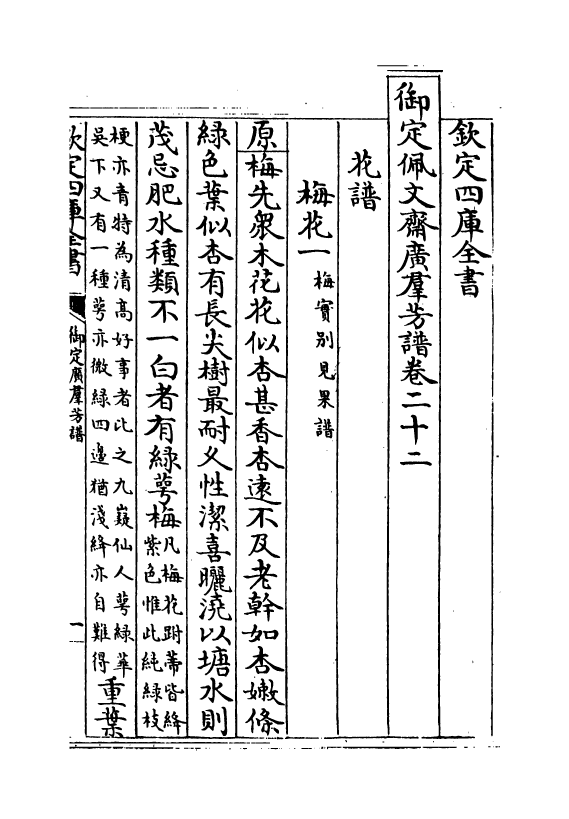 欽定四庫全書
御定佩文齋廣羣芳譜卷二十二
花譜
梅花一 梅實別見果譜
原梅先衆木花花似杏甚香杏遠不及老幹如杏嫩條
綠色葉似杏有長尖樹最耐久性潔喜曬澆以塘水則
茂忌肥水種類不一白者有綠萼梅凡梅花跗蒂皆絳
紫色惟此純綠枝
梗亦青特為清高好事者比之九嶷仙人萼綠華
吳下又有一種萼亦微綠四邊猶淺絳亦自難得重葉
欽定四庫全書
御定廣羣芳譜
一